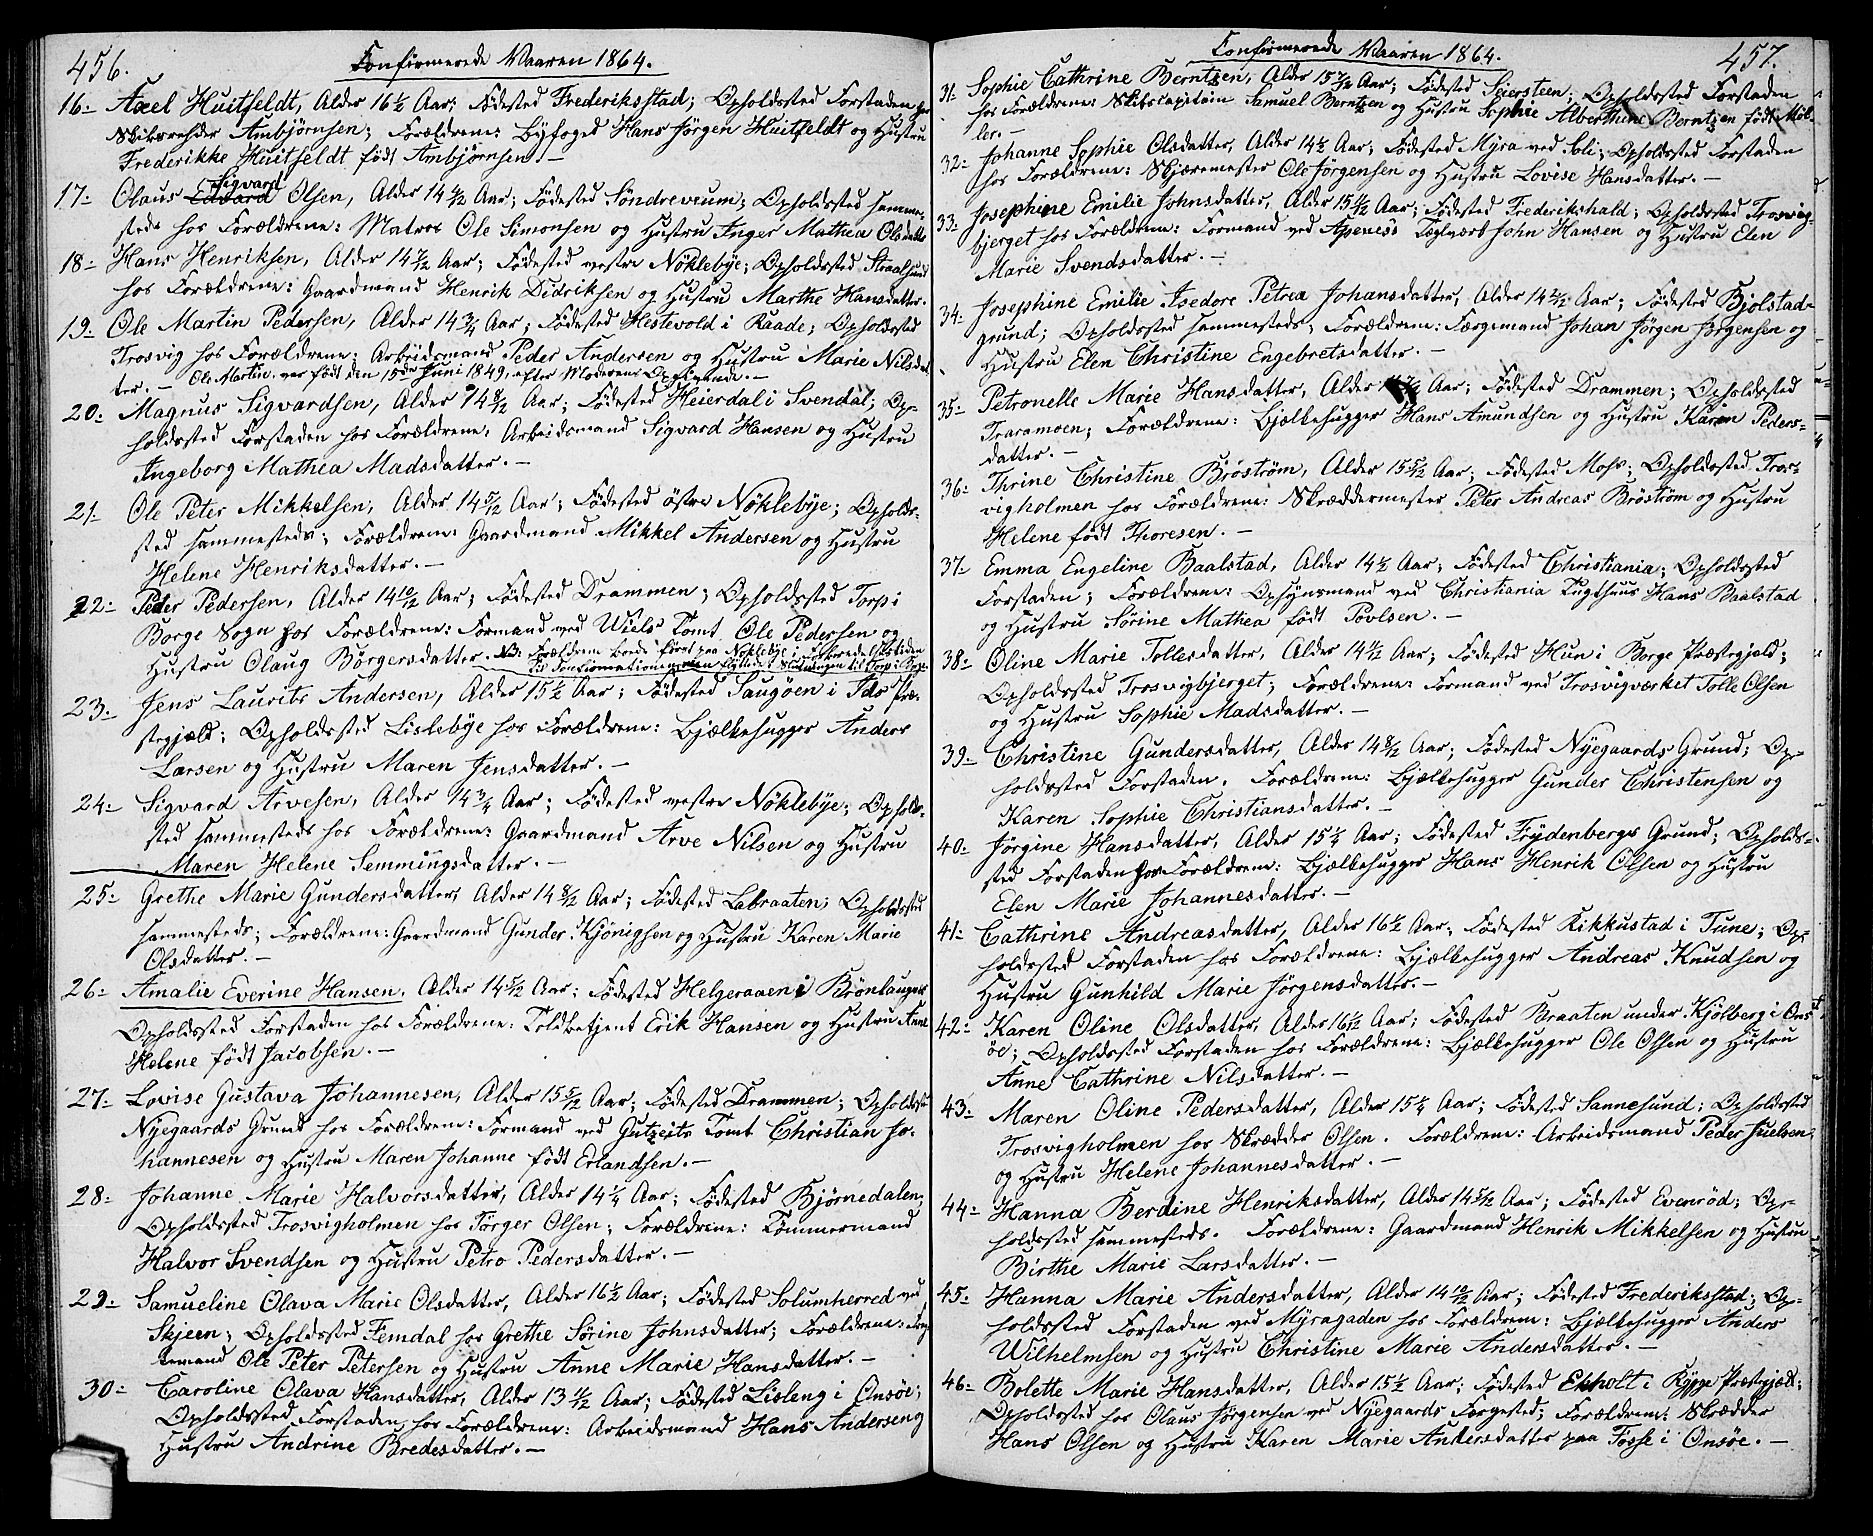 456.
Confirmerede Vaaren 1864.
16= Axel Huitfeldt, Alder 16½ Aar; Fødested Frederiksstad; Opholdssted Forstaden hos
Skibsrehder Ambjørnsen; Forældrene: Byfoged Hans Jørgen Huitfeldt og Hustru
Frederikke Huitfeldt født Ambjørnsen. —
Sigvard
17= Olaus Edvard Olsen, Alder Aar; Fødested Søndre; Opholdssted samme-
steds hos Forældrene: Matros Ole Simonsen og Hustru Inger Mathea Olsdatter
18= Hans Henriksen, Alder 14 7/12 Aar; Fødested vestre Nöklebÿe; Opholdssted Straalsund
hos Forældrene: Gaardmand Henrik Didriksen og Hustru Marthe Hansdatter.
19= Ole Martin Pedersen, Alder 14¾ Aar; Fødested Histevold i Raade; Opholdssted
Trosvig hos Forældrene: Arbeidsmand Peder Andersen og Hustru Marie Nilsdat
ter. — Ole Martin var født den 15de Juni 1849, efter Moderens Opgivende. —
20= Magnus Sigvardsen, Alder 14 8/12 Aar; Fødested Heierdal i Svendal; Op-
holdssted Forstaden hos Forældrene: Arbeidsmand Sigvard Hansen og Hustru
Ingeborg Mathea Madsdatter. —
21= Ole Peter Mikkelsen, Alder 14 5/12 Aar; Fødested östre Nöklebÿe; Opholds-
sted sammesteds; Forældrene: Gaardmand Mikkel Andersen og Hustru
Helene Henriksdatter. —
22= Peder Pedersen, Alder 14 10/12 Aar; Fødested Drammen; Opholdssted Torp i
Borge Sogn hos Forældrene: Formand ved Wiels Tomt Ole Pedersen og
Hustru Olaug Börgersdatter. NB: Forældrene boede først paa Nöklebÿe i
til Confirmationen, men flyttede til Torp i Borge.
23= Jens Laurits Andersen, Alder 15½ Aar; Fødested Saugöen i Ids Præ-
stegjæld; Opholdssted Lislebÿe hos Forældrene: Bjælkehugger Anders
Larsen og Hustru Maren Jensdatter. —
24= Sigvard Arvesen, Alder 14¾ Aar; Fødested vestre Nöklebÿe; Opholds-
sted sammesteds hos Forældrene: Gaardmand Arve Nilsen og Hustru
Maren Helene Semmingsdatter. —
25= Grethe Marie Gundersdatter, Alder 14 8/12 Aar; Fødested Labraaten; Opholdssted
sammesteds; Forældrene: Gaardmand Gunder Kjönigsen og Hustru Karen Marie
Olsdatter. —
26= Amalie Everine Hansen, Alder 14 5/12 Aar; Fødested Helgeraaen i Brönlaugnes
Opholdssted Forstaden hos Forældrene: Toldbetjent Erik Hansen og Hustru Anne
Helene født Jacobsen. —
27= Lovise Gustava Johannesen, Alder 15 5/12 Aar; Fødested Drammen; Opholdsst
Nÿegaards Grund hos Forældrene: Formand ved Gutzeits Tomt Christian Jo-
hannesen og Hustru Maren Johanne født Erlandsen. —
28= Johanne Marie Halvorsdatter, Alder 14¼ Aar; Fødested Bjørnedalen;
Opholdssted Trosvigholmen hos Jørger Olsen; Forældrene: Tømmermand
Halvor Svendsen og Hustru Petro Pedersdatter. —
29= Samueline Olava Marie Olsdatter, Alder 16½ Aar; Fødested Solumherred ved
Skjeen; Opholdssted Femdal hos Grethe Sörine Johnsdatter; Forældrene:
mand Ole Peter Petersen og Hustru Anne Marie Hansdatter. —
30= Caroline Olava Hansdatter, Alder 13 11/12 Aar; Fødested Lisleng i Onsöe;
Opholdssted Forstaden hos Forældrene: Arbeidsmand Hans Andersen og
Hustru Andrine Bredesdatter. —
Confirmerede Vaaren 1864.
457.
31= Sophie Cathrine Berntzen, Alder 15 7/12 Aar; Fødested Seiersteen; Opholdssted Forstaden
hos Forældrene: Skibscapitain Samuel Berntzen og Hustru Sophie Alberthine Berntzen født Möl-
ler. —
32= Johanne Sophie Olsdatter, Alder 14½ Aar; Fødested Mÿra ved Soli; Opholdssted Forstaden
hos Forældrene: Skjæremester Ole Jørgensen og Hustru Lovise Hansdatter. —
33= Josephine Emilie Johnsdatter, Alder Aar; Fødested Frederikshald; Opholdssted Trosvig-
bjerget hos Forældrene: Formand ved Apeness Teglværk John Hansen og Hustru Elen
Marie Svendsdatter. —
34= Josephine Emilie Isedore Petrea Johansdatter, Alder Aar; Fødested Bjölstad-
grund; Opholdssted sammesteds; Forældrene: Færgemand Johan Jørgen Jørgensen og
Hustru Elen Christine Engebretsdatter. —
35= Petronelle Marie Hansdatter, Alder Aar; Fødested Drammen; Opholdssted
Traramoen; Forældrene: Bjælkehugger Hans Amundsen og Hustru Karen Peders-
datter. —
36= Thrine Christine Bröström, Alder 15 5/12 Aar; Fødested Moss; Opholdssted Tros-
vigholmen hos Forældrene: Skræddermester Peter Andreas Bröström og Hustru
Helene født Thoresen. —
37= Emma Engeline Baalstad, Alder 14½ Aar; Fødested Christiania; Opholdssted
Forstaden; Forældrene: Opsÿnsmand ved Christiania Tugthuus Hans Baalstad
og Hustru Sörine Mathea født Povlsen. —
38= Oline Marie Tollesdatter, Alder Aar; Fødested Hun i Borge Præstegjæld;
Opholdssted Trosvigbjerget; Forældrene: Formand ved Trosvigværket Tolle Olsen
og Hustru Sophie Madsdatter. —
39= Christine Gundersdatter, Alder 14 8/12 Aar; Fødested Nÿegaards Grund; Op-
holdssted Forstaden. Forældrene: Bjælkehugger Gunder Christensen og
Karen Sophie Christiansdatter. —
40= Jørgine Hansdatter, Alder 15¼ Aar; Fødested Frÿdenbergs Grund; Opholds-
sted Forstaden hos Forældrene: Bjælkehugger Hans Henrik Olsen og Hustru
Elen Marie Johannesdatter. —
41= Cathrine Andreasdatter, Alder 16½ Aar; Fødested Kikkustad i Tune; Op-
holdssted Forstaden hos Forældrene: Bjælkehugger Andreas Knudsen og
Hustru Gunhild Marie Jörgensdatter. —
42= Karen Oline Olsdatter, Alder Aar; Fødested Braaten under Kjölberg i Ons
öe; Opholdssted Forstaden hos Forældrene: Bjælkehugger Ole Olsen og Hustru
Anne Cathrine Nilsdatter. —
43= Maren Oline Pedersdatter, Alder 15¼ Aar; Fødested Sannesund; Opholdssted
Trosvigholmen hos Skrædder Olsen. Forældrene: Arbeidsmand Peder Juelsen
og Hustru Helene Johannesdatter. —
44= Hanna Berdine Henriksdatter, Alder 14 5/12 Aar; Fødested Evenröd; Op-
holdssted sammesteds. Forældrene: Gaardmand Henrik Mikkelsen og Hustru
Birthe Marie Larsdatter. —
45= Hanna Marie Andersdatter, Alder Aar; Fødested Frederiksstad; Op-
holdssted Forstaden ved Mÿragaden hos Forældrene: Bjælkehugger Anders
Wilhelmsen og Hustru Christine Marie Andersdatter. —
46= Bolette Marie Hansdatter, Alder 15½ Aar; Fødested Ekholt i Rÿgge Præstegjæld;
Opholdssted hos Olaus Jørgensen ved Nÿegaards Færgested; Forældrene: Skrædder
Hans Olsen og Hustru Karen Marie Andersdatter paa Tosse i Onsöe. —